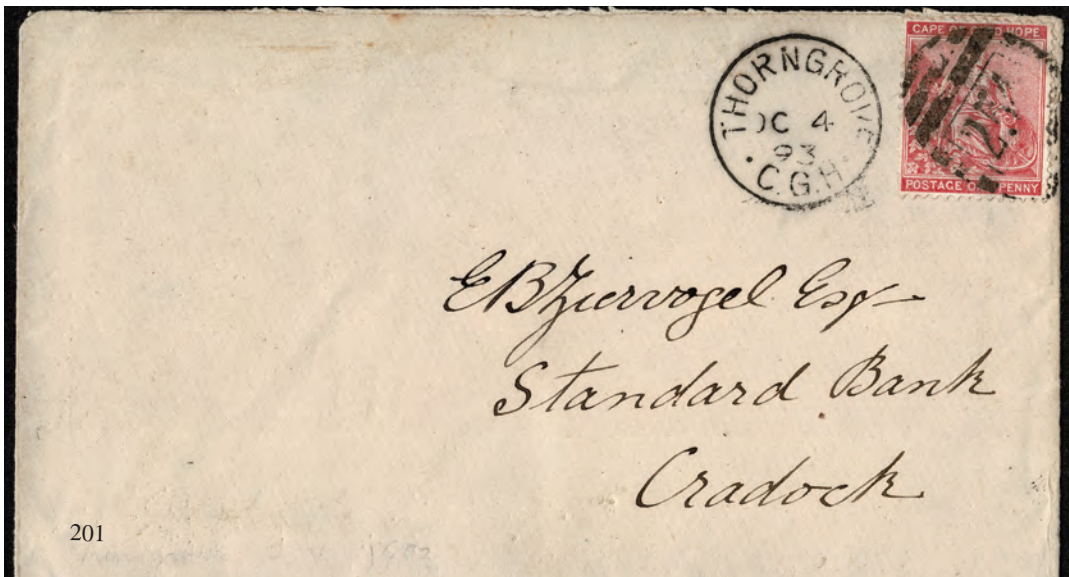 CAPE OF GOOD HOPE
POSTAGE ONE PENNY
THORNGROVE
OC 4
93
C.G.H.
E B Ziervogel Esqr
Standard Bank
Cradock
201